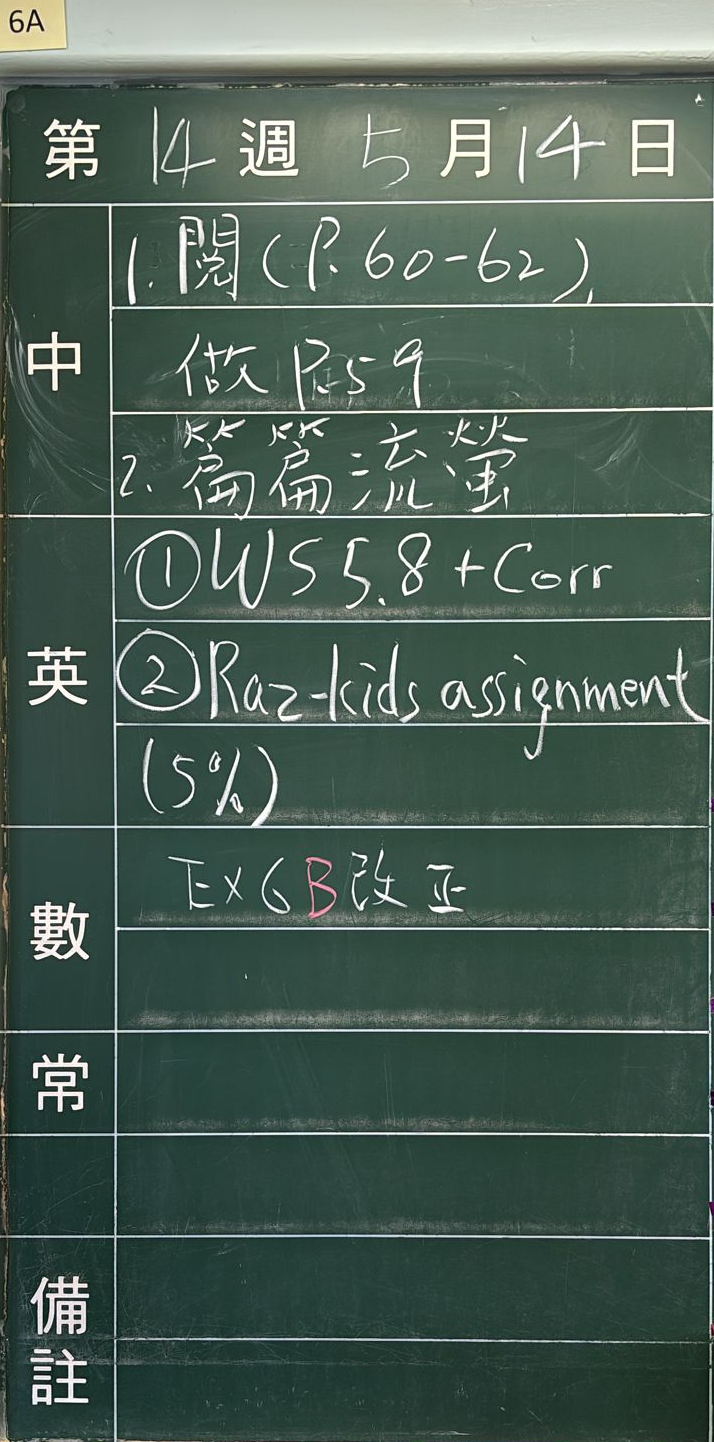 6A
第 14 週 5 月 14 日
中
1. 閱(P. 60-62),
做 P.59
2. 篇篇流螢
英
①WS 5.8 + Corr
②Raz-kids assignment
(5%)
數
Ex 6B 改正
常
備註